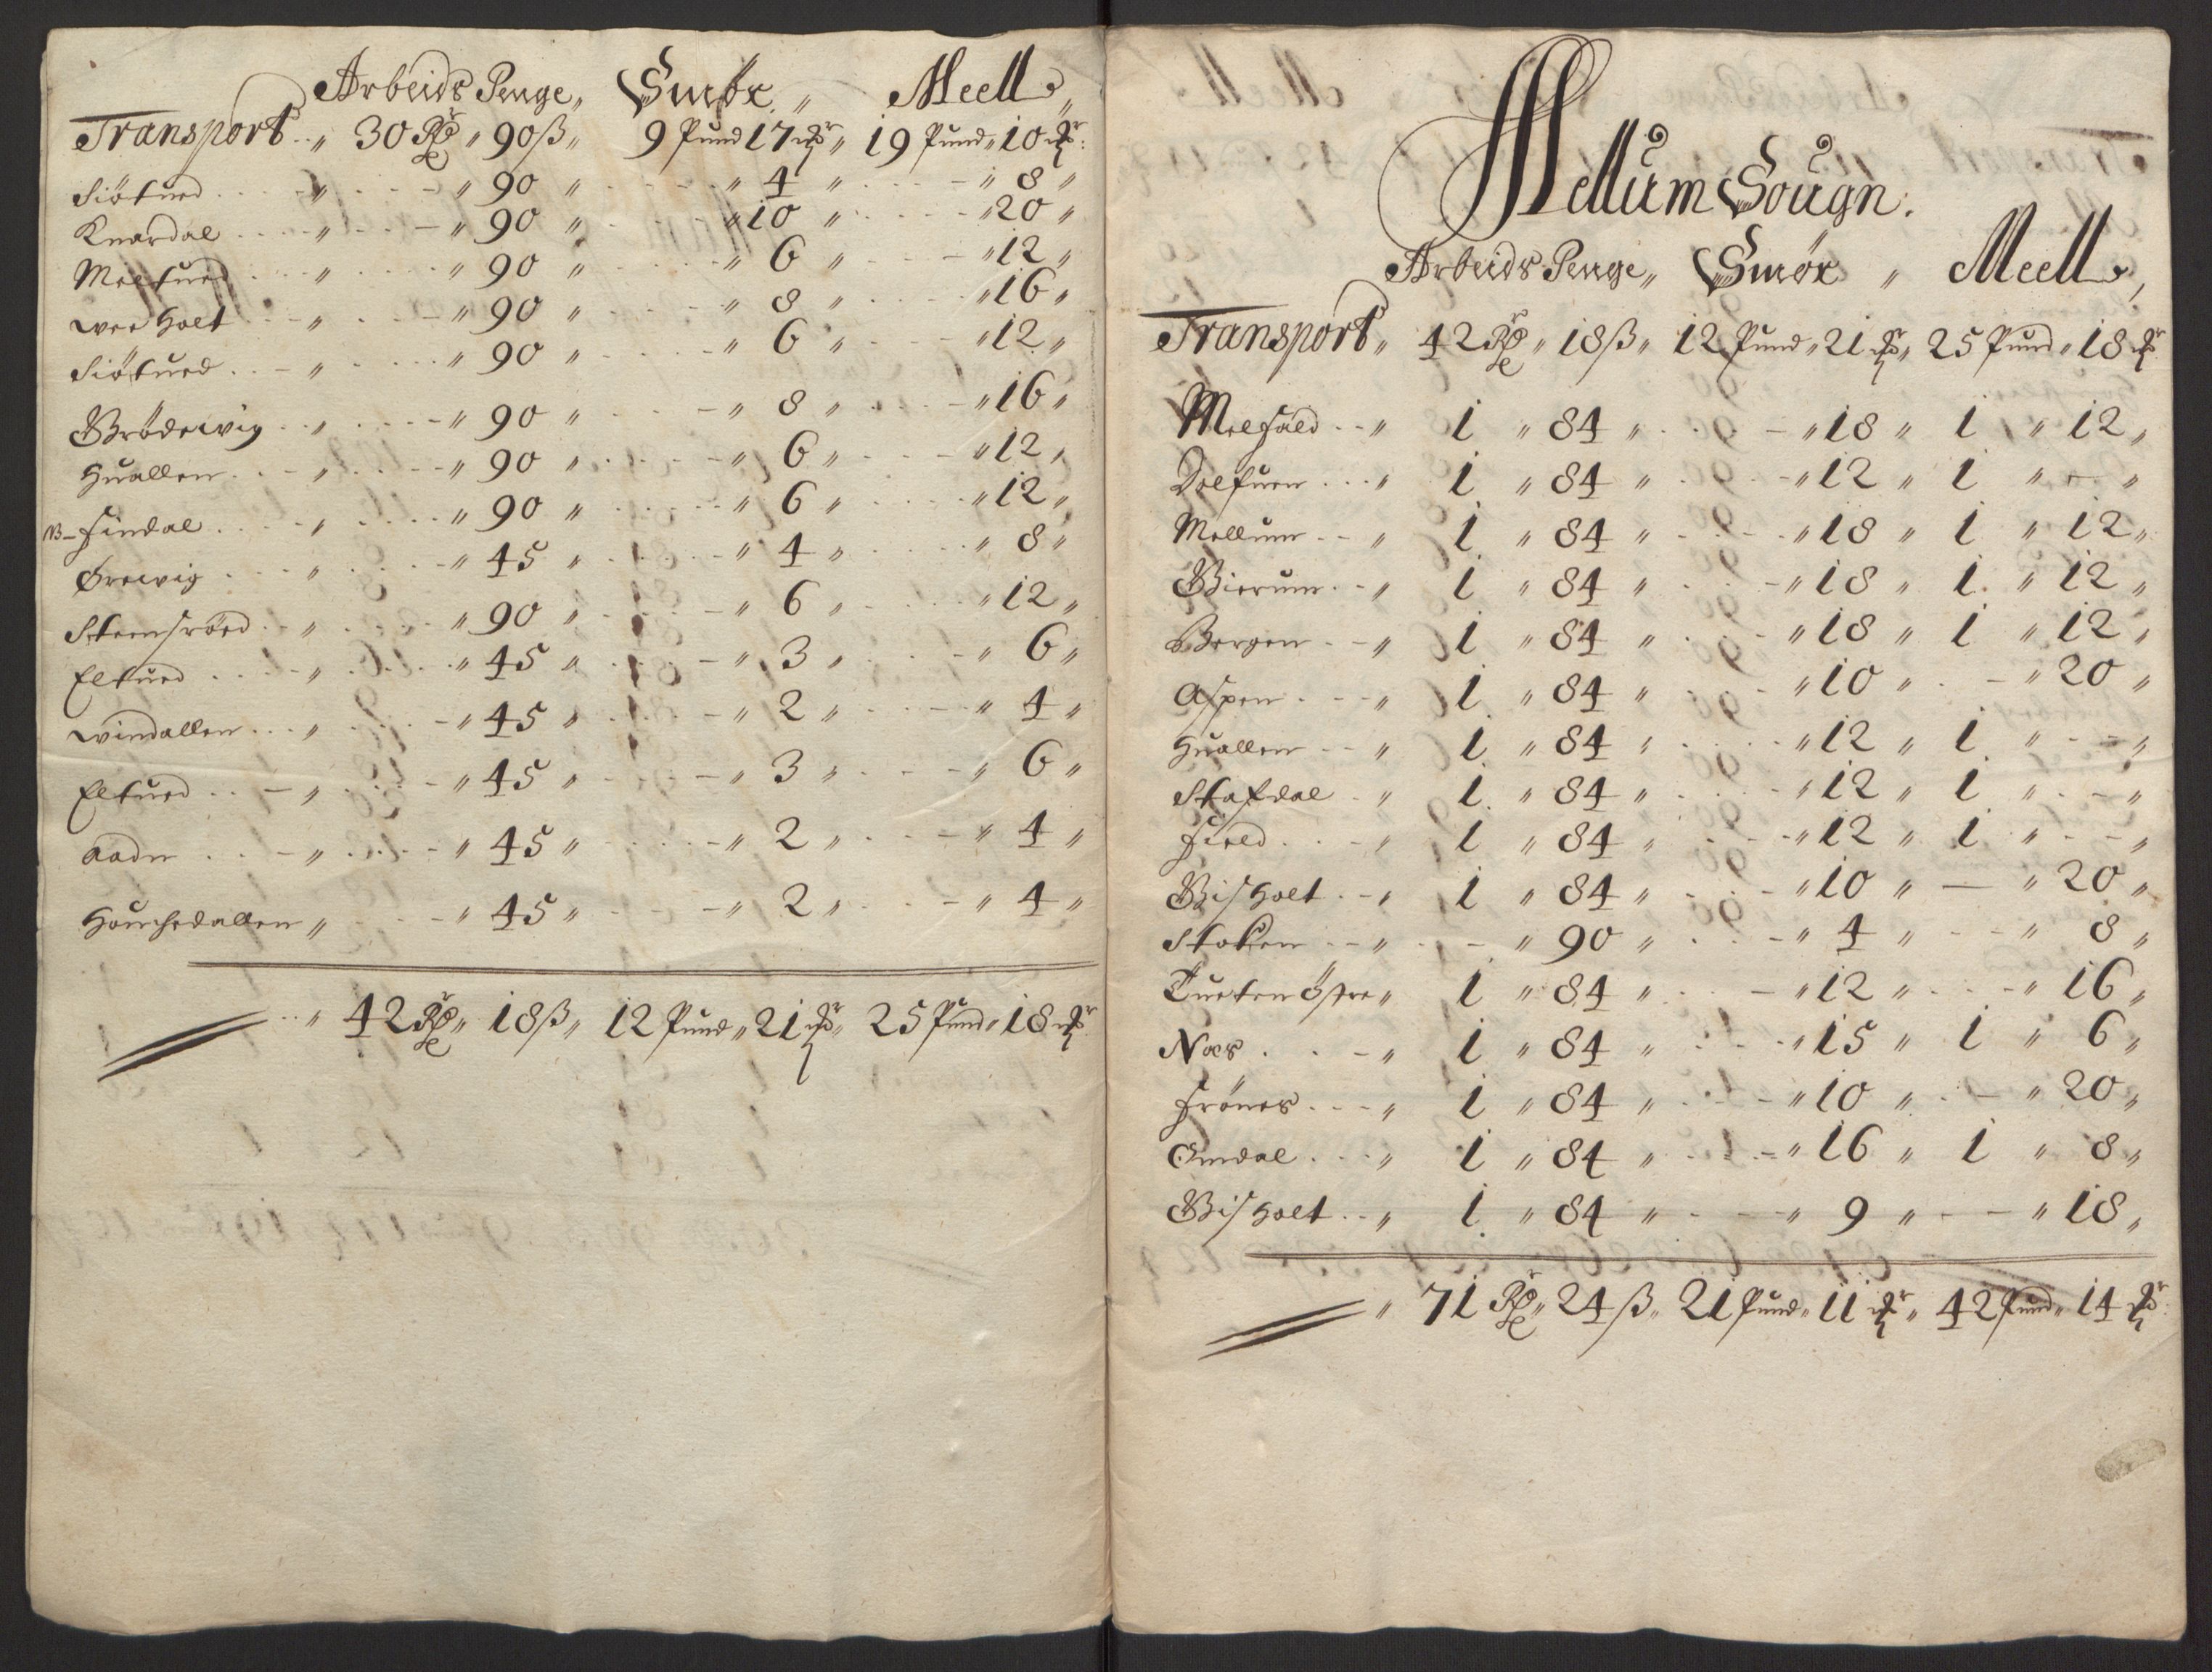 Arbeids Penge„ Smör „ Meell„
Transport „ 30 Rdr „ 90 ß„ 9 Pund 17 mkr „ 19 Pund „ 10 mkr:
Siötued „ „ 90 „ „ 4 „ „ 8 „
Knardal „ „ 90 „ „ 10 „ „ 20 „
Meltued „ „ 90 „ „ 6 „ „ 12 „
wee Holt „ „ 90 „ „ 8 „ „ 16 „
Siötued „ „ 90 „ „ 6 „ „ 12 „
Brödewig „ „ 90 „ „ 8 „ „ 16 „
Huallen „ „ 90 „ „ 6 „ „ 12 „
NB Findal „ „ 90 „ „ 6 „ „ 12 „
Grewig „ „ 45 „ „ 4 „ „ 8 „
Steensröed „ „ 90 „ „ 6 „ „ 12 „
Eltued „ „ 45 „ „ 3 „ „ 6 „
windallen „ „ 45 „ „ 2 „ „ 4 „
Eltued „ „ 45 „ „ 3 „ „ 6 „
Aadn „ „ 45 „ „ 2 „ „ 4 „
„ „ 45 „ „ 2 „ „ 4 „
„ 42 Rdr „ 18 ß„ 12 Pund „ 21 mkr „ 25 Pund „ 18 mkr
Mellum Sougn.
Arbeids Penge„ Smör „ Meell„
Transport „ 42 Rdr „ 18 ß„ 12 Pund „ 21 mkr „ 25 Pund „ 18 mkr
Melsaed „ 1 „ 84 „ „ 18 „ 1 „ 12 „
Doltuen „ 1 „ 84 „ „ 12 „ 1 „ - „
Mellum „ 1 „ 84 „ „ 18 „ 1 „ 12 „
Bierum „ 1 „ 84 „ „ 18 „ 1 „ 12 „
Bergen „ 1 „ 84 „ „ 18 „ 1 „ 12 „
Aspen „ 1 „ 84 „ „ 10 „ - „ 20 „
Huallen „ 1 „ 84 „ „ 12 „ 1 „ - „
Stafdal „ 1 „ 84 „ „ 12 „ 1 „ - „
Field „ 1 „ 84 „ „ 12 „ 1 „ - „
Bisholt „ 1 „ 84 „ „ 10 „ - „ 20 „
Stoken „ - „ 90 „ „ 4 „ - „ 8 „
Tueten östre „ 1 „ 84 „ „ 12 „ - „ 16 „
Næs „ 1 „ 84 „ „ 15 „ 1 „ 6 „
Frönes „ 1 „ 84 „ „ 10 „ - „ 20 „
Omdal „ 1 „ 84 „ „ 16 „ 1 „ 8 „
Bisholt „ 1 „ 84 „ „ 9 „ - „ 18 „
„ 71 Rdr „ 24 ß„ 21 Pund „ 11 mkr „ 42 Pund „ 14 mkr: